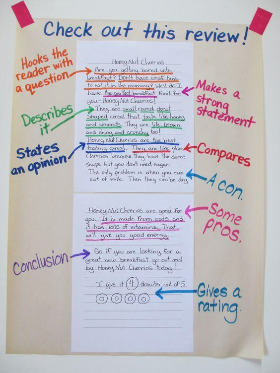 Check out this review!
Hooks the
reader with
a question
Describes
it
States
an opinion
Conclusion
Makes a
strong
statement.
Compares
A con.
Some
pros.
Gives a
rating.
Honey Nut Cheerios
Are you getting bored with
breakfast? Don't know what
to eat in the morning? Well do I
have the perfect breakfast food for
you- Honey Nut Cheerios!
They are small round donut
shaped cereal that taste like honey
and
too!
Honey Nut Cheerios are the best
tasting cereal. They are like plain
Cheerios because they have the same
shape but you don't need sugar.
The only problem is when you run
out of milk. Then they can be dry.
Honey Nut Cheerios are good for
you. It is made from oats and
it has lots of vitamins. That
will give you good energy.
So if you are looking for a
great new breakfast go out and
buy Honey Nut Cheerios today!
I give it 4 out of 5.